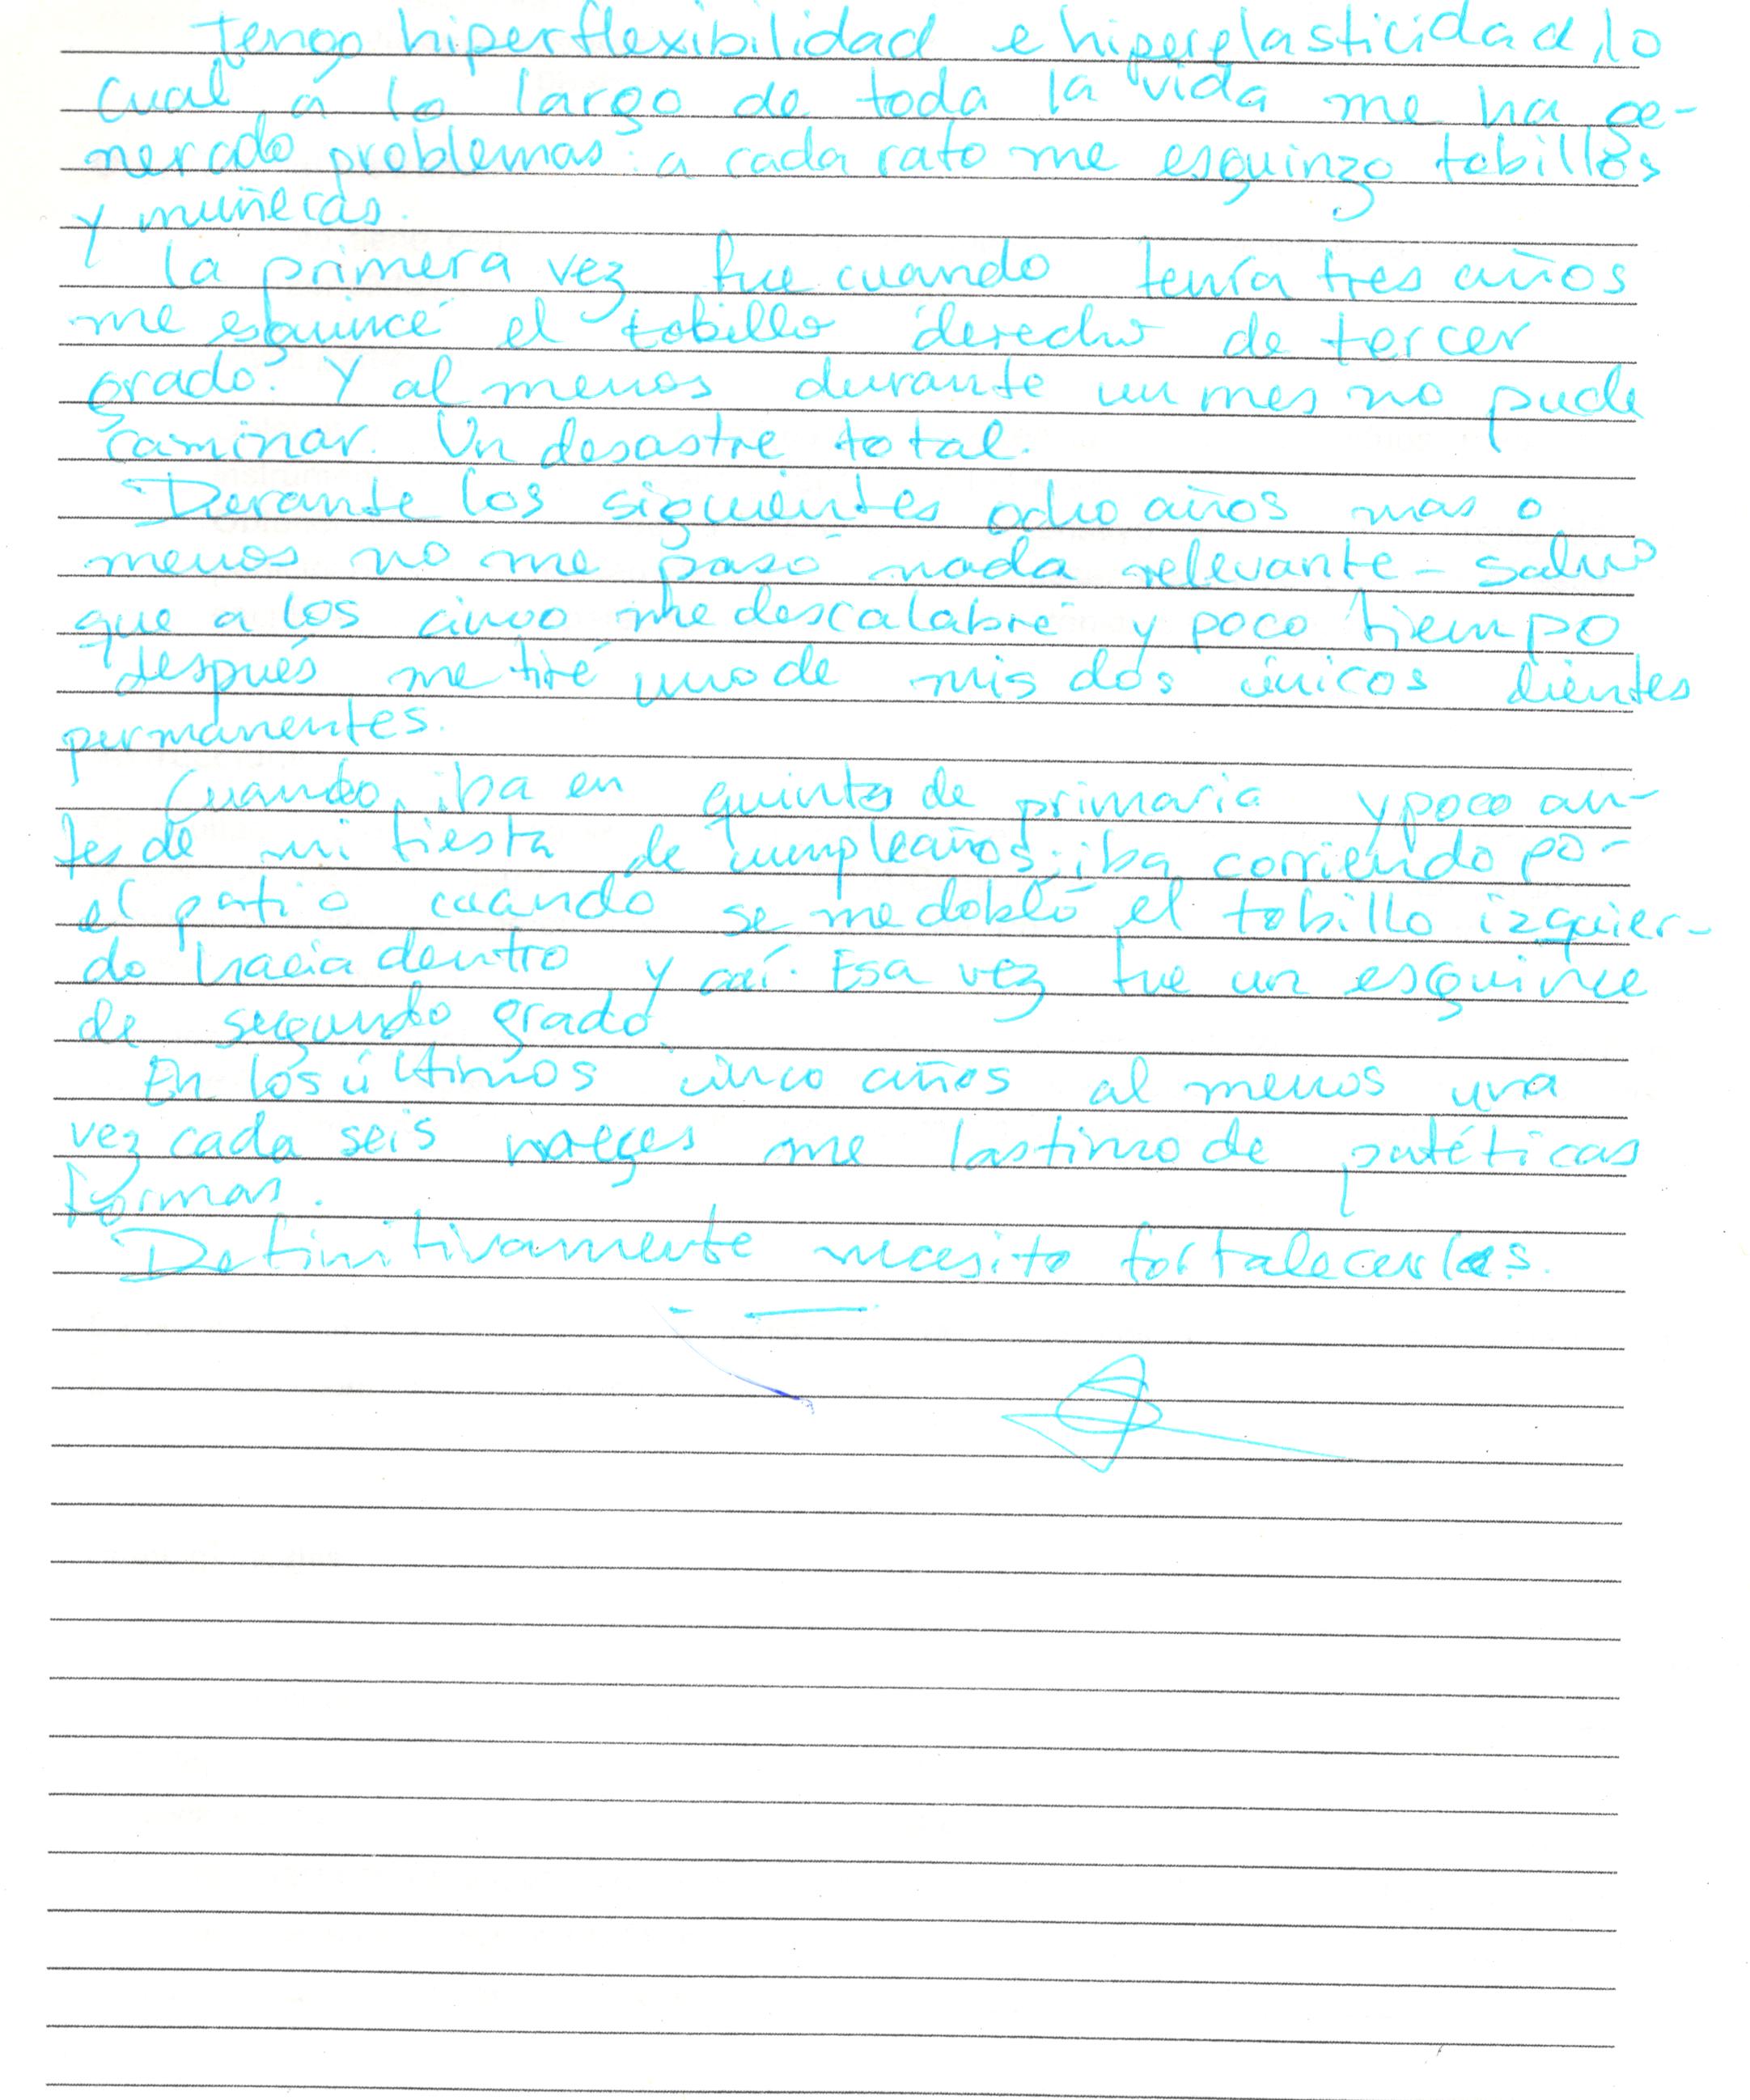 Tengo hiperflexibilidad e hiperelasticidad, lo
cual a lo largo de toda la vida me ha ge-
nerado problemas: a cada rato me esquinzo tobillos
y muñecas.
La primera vez fue cuando tenía tres años
me esquincé el tobillo derecho de tercer
grado. Y al menos durante un mes no pude
caminar. Un desastre total.
Durante los siguientes ocho años mas o
menos no me pasó nada relevante - salvo
que a los cinco me descalabré y poco tiempo
después me tiré uno de mis dos únicos dientes
permanentes.
Cuando iba en quinto de primaria y poco an-
tes de mi fiesta de cumpleaños, iba corriendo por
el patio cuando se me dobló el tobillo izquier-
do hacia dentro y caí. Esa vez fue un esguince
de segundo grado.
En los últimos cinco años al menos una
vez cada seis meses me lastimo de patéticas
formas.
Definitivamente necesito fortalecerlos.